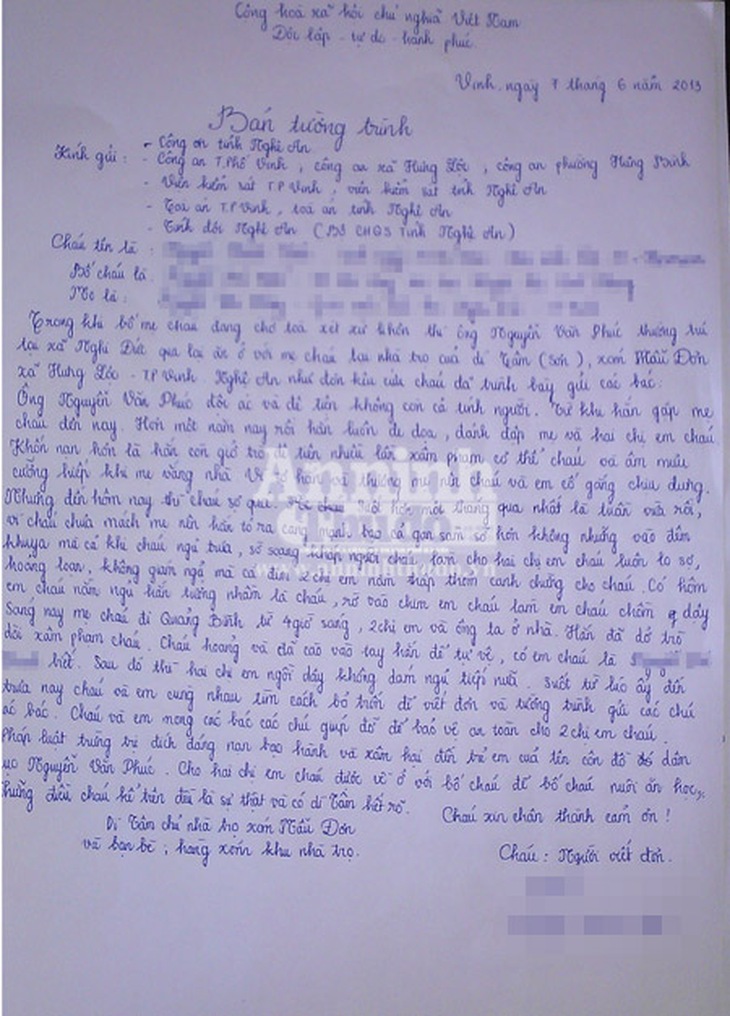 Công hoà xã hội chủ nghĩa Việt Nam
Độc lập - tự do - hành phúc
Vinh, ngày 7 tháng 6 năm 2013
Bản tường trình
- Công an tỉnh Nghệ An
Kính gửi : - Công an T.Phố Vinh, công an xã Hưng Lộc, công an phường Hưng Bình
- Viện kiểm sát T.P Vinh, viện kiểm sát tỉnh Nghệ An
- Toà án T.P Vinh, toà án tỉnh Nghệ An
- Tỉnh đội Nghệ An (Bộ CHQS Tỉnh Nghệ An)
Cháu tên là :
Bố cháu là :
Mẹ là :
Trong khi bố mẹ cháu đang chờ toà xét xử thì ông Nguyễn Văn Phúc thường trú
tại xã Nghi Diên qua lại ăn ở với mẹ cháu tại nhà trọ của dì Tâm (Sơn), xóm Mẫu Đơn
xã Hưng Lộc - T.P Vinh. Nghệ An như đơn kêu cứu cháu đã trình bày gửi các bác:
Ông Nguyễn Văn Phúc độc ác và đê tiện không còn cả tính người. Từ khi hắn gặp mẹ
cháu đến nay. Hơn một năm nay rồi hắn luôn đe doạ, đánh đập mẹ và hai chị em cháu
Khốn nạn hơn là hắn còn giở trò đê tiện nhiều lần xâm phạm cơ thể cháu và âm mưu
cưỡng hiếp khi mẹ vắng nhà. Vì sợ hắn và thương mẹ nên cháu và em cố gắng chịu đựng.
Nhưng đến hôm nay thì cháu sợ quá. Suốt hơn một tháng qua nhất là tuần vừa rồi,
vì cháu chưa mách mẹ nên hắn tỏ ra càng mạnh bạo cả gan sàm sỡ hơn không những vào đêm
khuya mà cả khi cháu ngủ trưa, sờ soạng khắp người cháu, làm cho hai chị em cháu luôn lo sợ,
hoảng loạn, không giám ngủ mà cả đêm 2 chị em nằm thấp thỏm canh chừng cho cháu. Có hôm
em cháu nằm ngủ hắn tưởng nhầm là cháu, rờ vào chim em cháu làm em cháu chồm dậy
Sáng nay mẹ cháu đi Quảng Bình từ 4 giờ sáng, 2 chị em và ông ta ở nhà. Hắn đã dở trò
đòi xâm phạm cháu. Cháu hoảng và đã cào vào tay hắn để tự vệ, có em cháu là
biết. Sau đó thì hai chị em ngồi dậy không dám ngủ tiếp nữa. Suốt từ lúc ấy đến
trưa nay cháu và em cùng nhau tìm cách bỏ trốn để viết đơn và tường trình gửi các chú
các bác. Cháu và em mong các bác các chú giúp đỡ để bảo vệ an toàn cho 2 chị em cháu.
Pháp luật trừng trị đích đáng nạn bạo hành và xâm hại đến trẻ em của tên côn đồ dâm
ục Nguyễn Văn Phúc. Cho hai chị em cháu được về ở với bố cháu để bố cháu nuôi ăn học,
hững điều cháu kể trên đều là sự thật và có dì Tâm biết rõ.
Cháu xin chân thành cảm ơn !
Dì Tâm chủ nhà trọ xóm Mẫu Đơn
và bạn bè, hàng xóm khu nhà trọ.
Cháu : Người viết đơn.
An ninh
Thủ đô
www.anninhthudo.vn